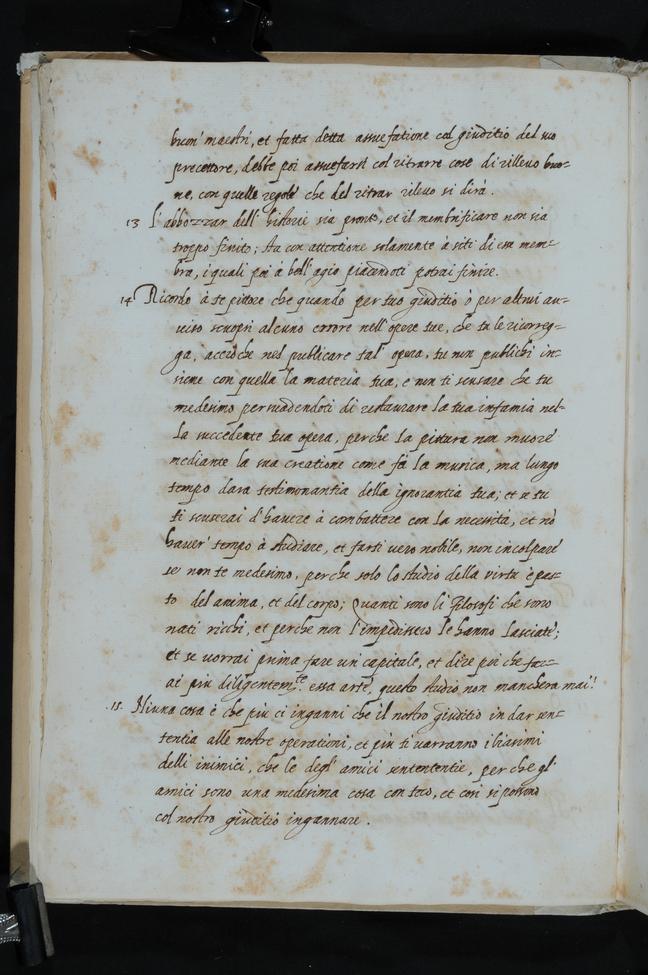 buon' maestri, et fatta detta assuefatione col giuditio del suo
precettore, debbe poi assuefarsi col ritrarre cose di rillevo buo=
ne, con quelle regole che del ritrar rilevo si dirà.
13 L'abbozzar dell' historie sia pronto, et il membrificare non sia
troppo finito; sta con attentione solamente à siti di esse mem=
bra, i quali poi à bell' agio piacendoti potrai finire.
14 Ricordo à te pittore che quando per tuo giuditio ò per altrui au=
uiso scuopri alcuno errore nell' opere tue, che tu le ricorreg=
ga, acciòche nel publicare tal' opera, tu non publichi in=
sieme con quella la materia tua, e non ti scusare che tu
medesimo persuadendoti di restaurare la tua infamia nel=
la succedente tua opera, perche la pittura non muore
mediante la sua creatione come fà la musica, ma lungo
tempo darà testimonantia della ignorantia tua; et se tu
ti scuserai d'havere à combattere con la necessità, et nò
haver' tempo à studiare, et farti vero nobile, non incolpare
se non te medesimo, perche solo lo studio della virtu è pas=
to del anima, et del corpo; Quanti sono li Filosofi che sono
nati ricchi, et perche non l'impedissero le hanno lasciate;
et se uorrai prima fare un' capitale, et dire poi che far=
ai piu diligentem.te essa arte, questo studio non mancherà mai!
15. Niuna cosa è che piu ci inganni che il nostro giuditio in dar sen=
tentia alle nostre operationi, et piu ti varranno i biasimi
delli inimici, che le degl' amici sententie, perche gl'
amici sono una medesima cosa con teco, et cosi si possono
col nostro giuditio ingannare.